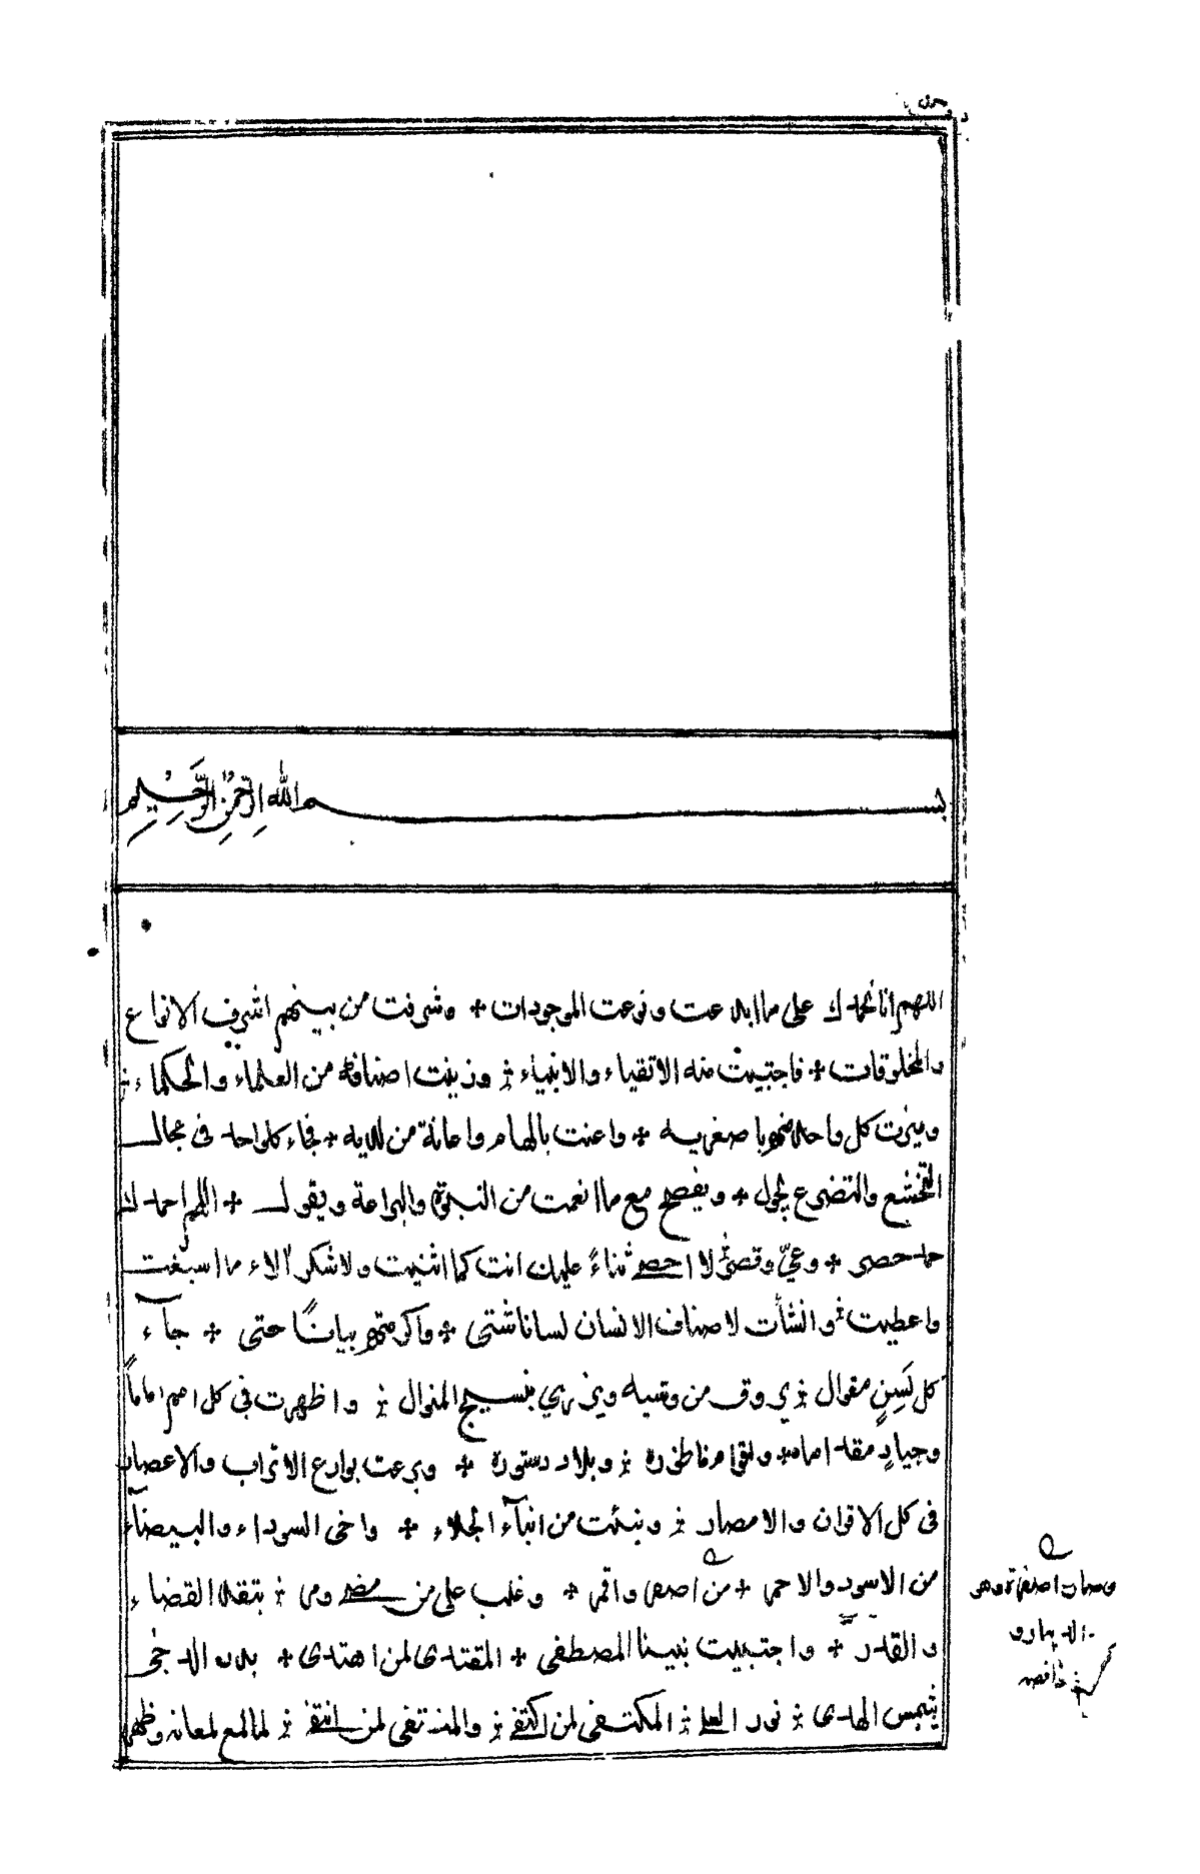 بسم الله الرحمن الرحيم
اللهم انا نحمدك على ما ابدعت ونوعت الموجودات + وشرفت من بينهم اشرف الانواع
والمخلوقات + فاجتبيت منه الاتقياء والانبياء ؛ وزينت اصنافه من العلماء والحكماء ؛
وميزت كل واحد منهم باصغريه + واعنت بالهام واعانة من لديه + فجاء كلواحد فى مجال
التخشع والتضرع يجول + ويفصح مع ما انعمت من النبوة والبراعة ويقول + اللهم احمدك
حمد حصر + وعيّ وقصر لا احصے ثناءً عليك انت كما اثنيت ولا شكر آلاء ما اسبغت
واعطيت ؛ وانشأت لاصناف الانسان لسانا شتى + واكرمتهم بيانًا حتى + جآء
كل لَسِنٍ مقوال ؛ يروق من وشيه ويزري بنسيج المنوال ؛ واظهرت فى كل امم اماماً
وجيادٍ مقداماه + وبلاد دستورة + وبرعت بوارع الاتراب والاعصار
فى كل الاقران والامصار ؛ ونبئت من انبآء الجلاء + واخى السوداء والبيضآء
من الاسود والاحمر + من اصفر واقمر + وغلب على من مضے ومر ؛ بتقد القضاء
والقدر + واجتبيت نبينا المصطفى + المقتدى لمن اهتدى + بدر الدجى
شمس الهدى ؛ نور العلے ؛ المكتفى لمن اكتفے ؛ والمنتقى لمن انتقے ؛ لما لمع لمعانه وظهر